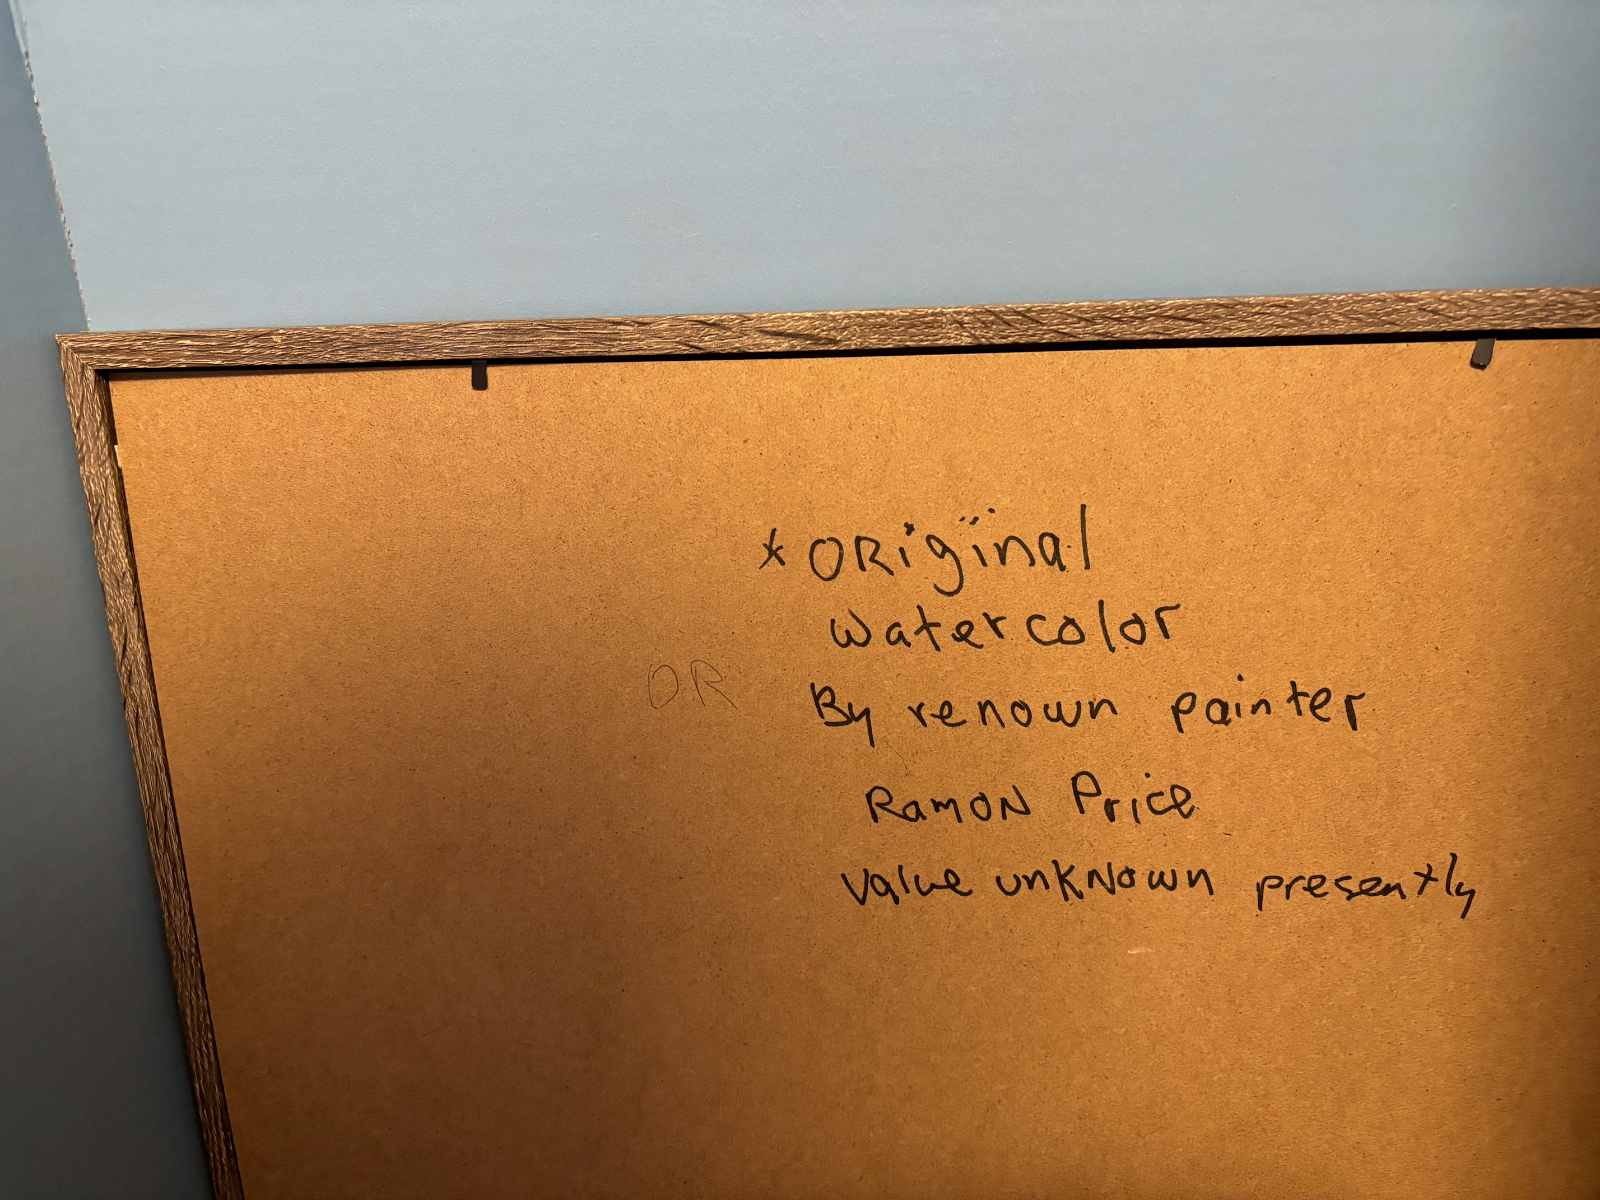 * ORiginal
Watercolor
OR
By renown painter
Ramon Price
Value unknown presently